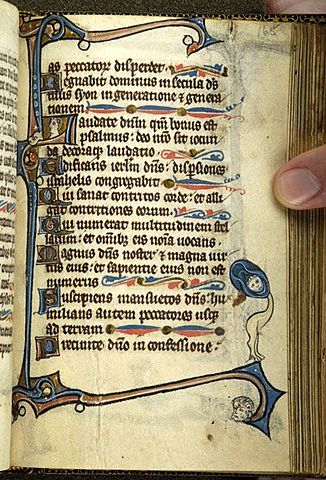 as peccatorum disperdet.
Regnabit dominus in secula ds
tuus syon in generatione & genera
tionem
Laudate dnm qm bonus est
psalmus: deo nro sit iocun
da decoraq; laudatio.
Edificans ierlm dns: dispersiones
israhelis congregabit.
Qui sanat contritos corde: et alli
gat contritiones eorum.
Qui numerat multitudinem stel
larum: et omnibz eis noia vocans.
Magnus dns noster & magna uir
tus eius: et sapientie eius non est
numerus
Suscipiens mansuetos dns: hu
milians autem peccatores usq;
ad terram
Precinite dno in confessione: